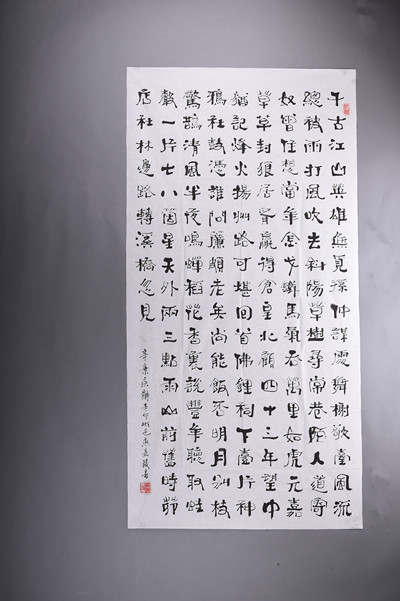 千古江山英雄無覓孫仲謀處舞榭歌臺風流
總被雨打風吹去斜陽草樹尋常巷陌人道寄
奴曾住想當年金戈鐵馬氣吞萬里如虎元嘉
草草封狼居胥贏得倉皇北顧四十三年望中
猶記烽火揚州路可堪回首佛貍祠下壹片神
鴉社鼓憑誰問廉頗老矣尚能飯否明月別枝
驚鵲清風半夜鳴蟬稻花香裏說豐年聽取蛙
聲一片七八箇星天外兩三點雨山前舊時茆
店社林邊路轉溪橋忽見
辛棄疾辭辛卯